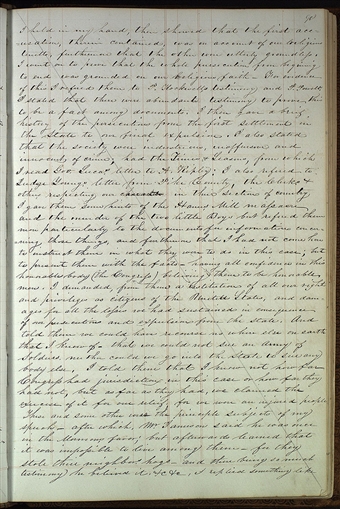 90
I held in my hand, then shewed that the first acc-
usation, therein contained, was on account of our religious
tenets, furthermore that the other were utterly groundless;
I went on to prove that the whole persecution from beginning
to end was grounded on our Religious faith — For evidence
of this I refered them to P. Rockwells testimony and P. Powell
I stated that there was abundant testimony to prove this
to be a fact among documents. I then gave a brief
history of the persecutions from the first settlement in
the State to our final expulsion, I also stated
that the society were industrious, inoffensive and
innocent of crime; had the Times & Seasons, from which
I read Gov: Lucas' letter to A. Ripley; I also refered to
Judge Young's letter from Pike County, the Clerk
in that section of country
I gave them some hints of the Hawns Mill massacre
and the murder of the two little Boys but refered them
more particularly to the documents for information concer-
ning those things, and furthermore that I had not come here
to instruct them in what they were to do in this case; but
to present them with the facts — having all confidence in this
honorable body (the Congress) believing them to be honorable
men. I demanded from them a restitution of all our rights
and privileges as citizens of the United States, and dam-
ages for all the losses we had sustained in consequence
of our persecutions and expulsion from the State: And
told them we could have recourse no where else on earth
that I knew of — that we could not sue an army of
Soldiers, neither could we go into the State to sue any
body else. I told them that I knew not how far
Congress had jurisdiction in this case or how far they
had not; but as far as they had, we claimed the
exercise of it for our relief; for we were an injured people
These and some other were the principle subjects of my
speech — after which, Mr. Jameson said he was once
in the Mormons favor, but afterwards learned that
it was impossible to live among them — for they
stole their neighbors hogs — and there being so much
testimony he believed it &c &c, I replied something like